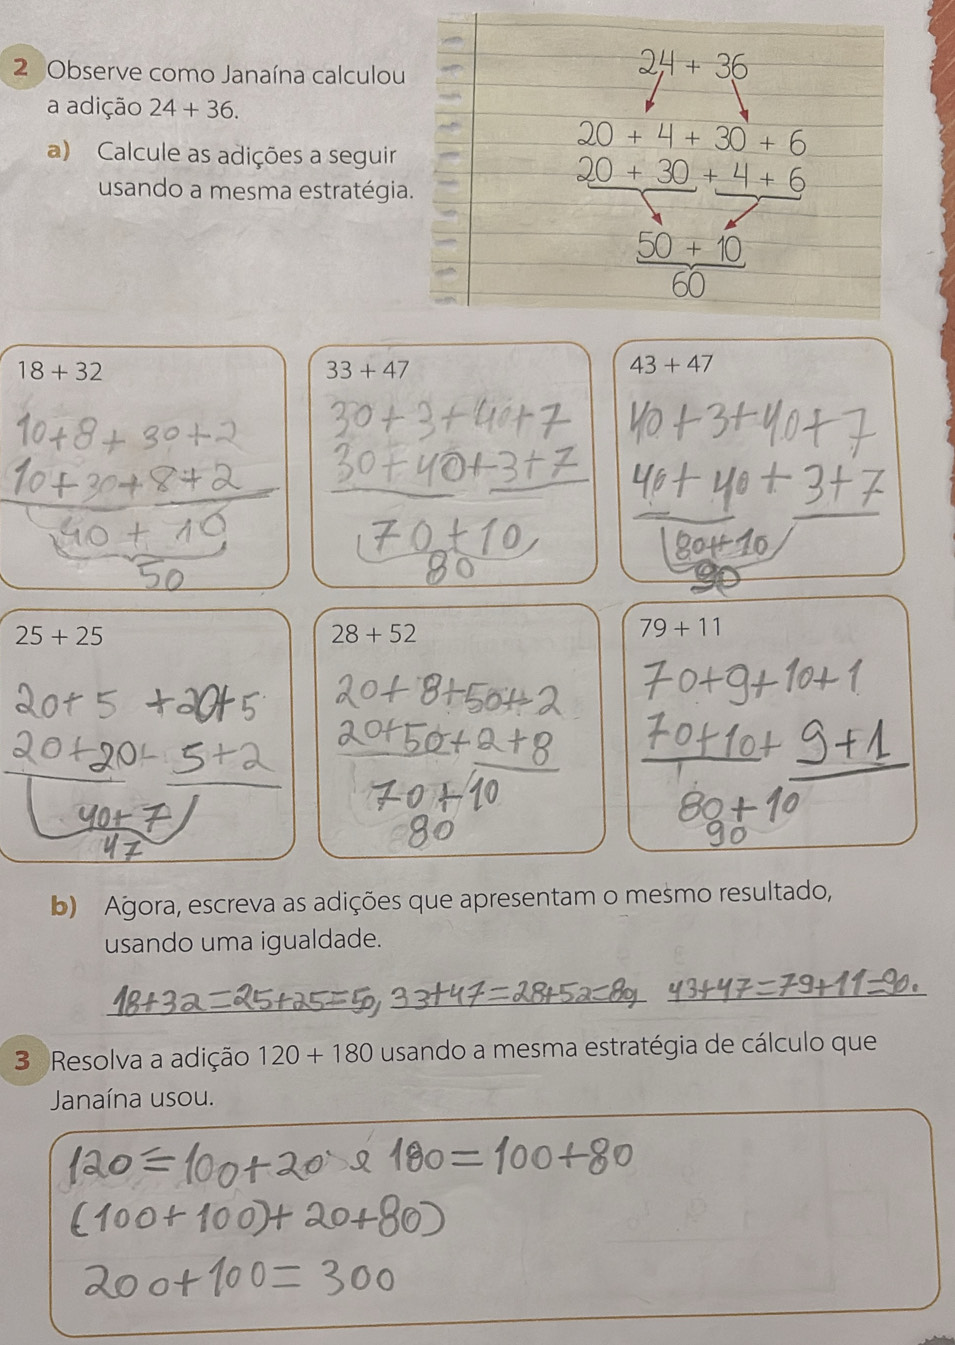 2 Observe como Janaína calculou
a adição 24 + 36.
a) Calcule as adições a seguir
usando a mesma estratégia.
24 + 36
20 + 4 + 30 + 6
20 + 30 + 4 + 6
50 + 10
60
18 + 32
10+8+30+2
10+30+8+2
40+10
50
33 + 47
30+3+40+7
30+40+3+7
70+10
80
43 + 47
40+3+40+7
40+40+3+7
80+10
90
25 + 25
20+5+20+5
20+20+5+2
40+7
47
28 + 52
20+8+50+2
20+50+2+8
70+10
80
79 + 11
70+9+10+1
70+10+9+1
80+10
90
b) Agora, escreva as adições que apresentam o mesmo resultado,
usando uma igualdade.
18+32=25+25=50, 33+47=28+52=80, 43+47=79+11=90.
3 Resolva a adição 120 + 180 usando a mesma estratégia de cálculo que
Janaína usou.
120=100+20 e 180=100+80
(100+100)+20+80)
200+100=300